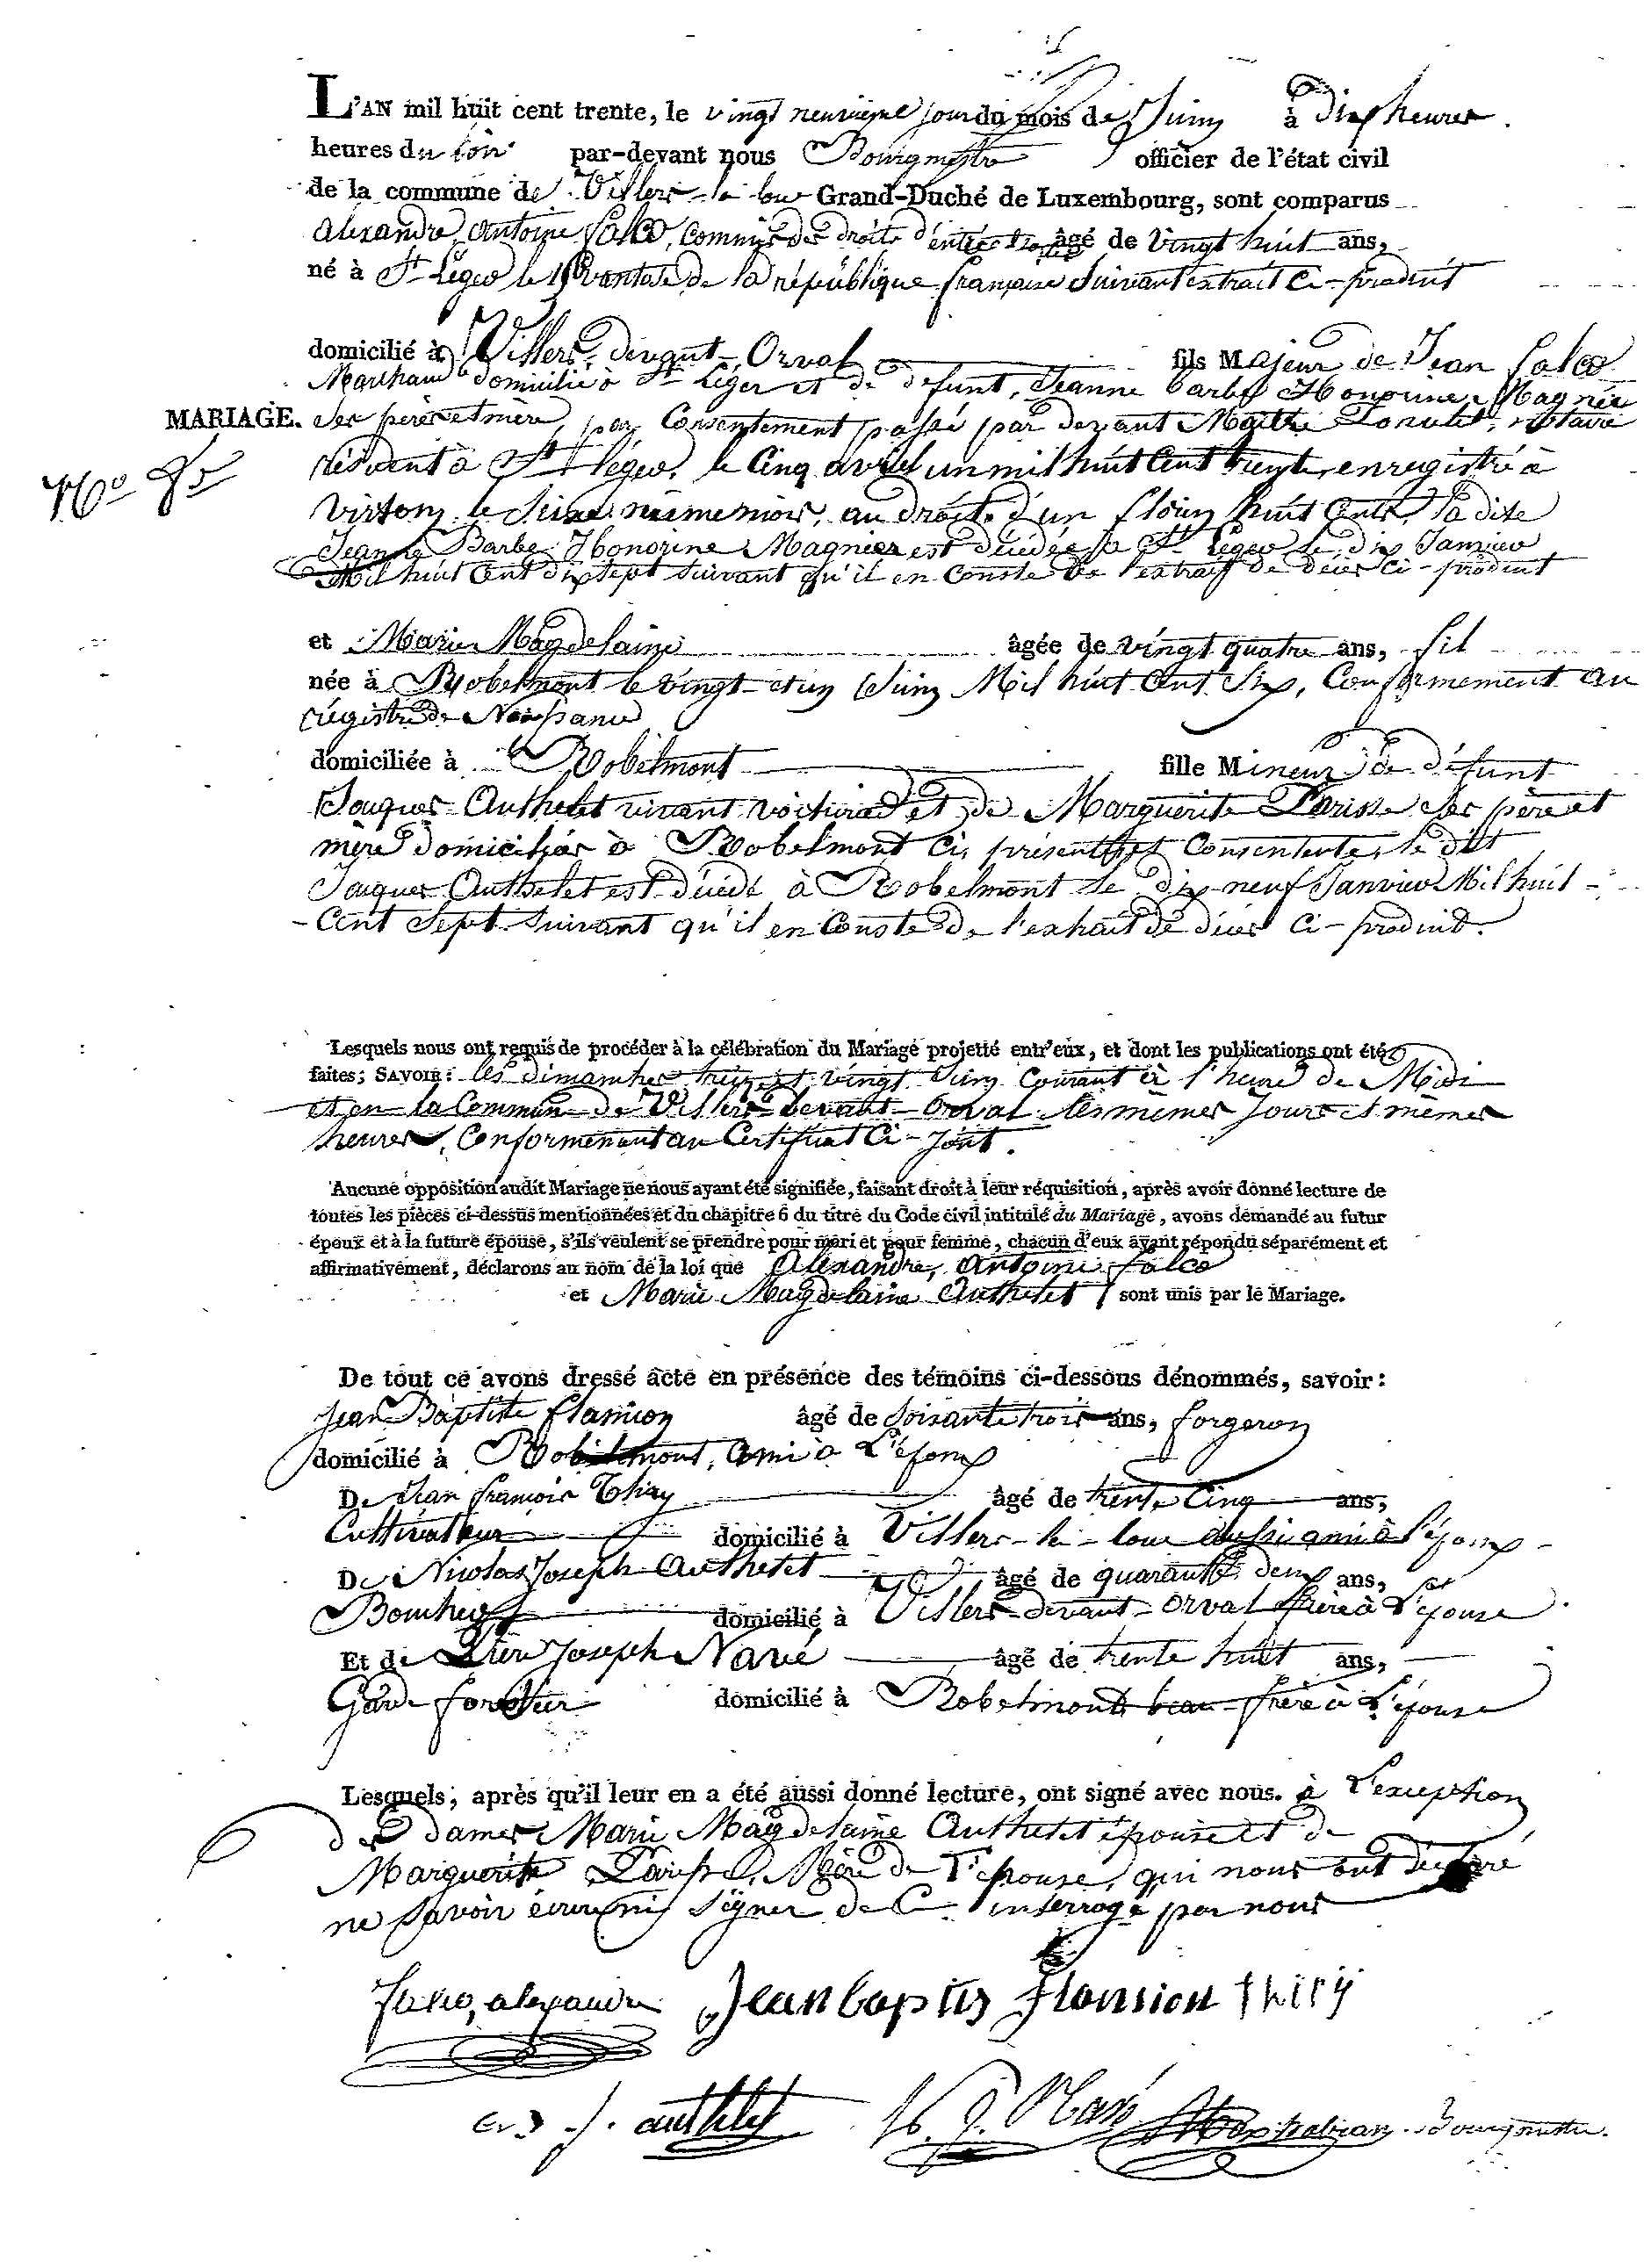 L'AN mil huit cent trente, le vingt neuvieme jour du mois de Juin à dix heures
heures du soir par-devant nous Bourgmestre officier de l'état civil
de la commune de Villers-la-loue Grand-Duché de Luxembourg, sont comparus
alexandre antoine falco, commis des droits d'entrée âgé de vingt huit ans,
né à St Léger le ventose de la république française suivant extrait ci-produit
domicilié à Villers-devant-Orval fils Majeur de Jean falco
Marchand domicilié à St Léger et de defunt, Jeanne barbe Honorine Magnier
MARIAGE. ses père et mère, par Consentement passé par devant Maître notaire
résident à St léger, le Cinq avril un mil huit Cent trente, enregistré à
No
virton le même mois, au droit d'un florin huit Cents, la dite
Jeanne Barbe Honorine Magnier est décédée à St Léger le dix Janvier
Mil huit Cent dix sept suivant qu'il en Conste de l'extrait de décès Ci-produit
et Marie Magdelaine âgée de vingt quatre ans, fil
née à Robelmont le vingt-et un Juin Mil huit Cent Six, Conformement au
régistre de Naissance
domiciliée à Robelmont fille Mineur de défunt
Jacques Authelet vivant voiturier et de Marguerite Parisse ses père et
mère domiciliés à Robelmont Ci présente et Consentente, le dit
Jacques Authelet est décédé à Robelmont le dix-neuf Janvier Mil huit-
-Cent Sept suivant qu'il en Conste de l'extrait de décès Ci-produit.
Lesquels nous ont requis de procéder à la célébration du Mariage projetté entr'eux, et dont les publications ont été
faites; SAVOIR: les dimanches treize et vingt Juin Courant à l'heure de Midi
et en la Commune de Villers-devant-Orval les mêmes Jours et mêmes
heures, Conformement au Certificat Ci-joint.
Aucune opposition audit Mariage ne nous ayant été signifiée, faisant droit à leur réquisition, après avoir donné lecture de
toutes les pièces ci-dessus mentionnées et du chapitre 6 du titre du Code civil intitulé du Mariage, avons demandé au futur
époux et à la future épouse, s'ils veulent se prendre pour mari et pour femme, chacun d'eux ayant répondu séparément et
affirmativement, déclarons au nom de la loi que Alexandre, Antoine falco
et Marie Magdelaine Authelet sont unis par le Mariage.
De tout ce avons dressé acte en présence des témoins ci-dessous dénommés, savoir:
Jean Baptiste flamion âgé de soixante trois ans, forgeron
domicilié à Robelmont, ami à L'époux
De Jean françois Thiry âgé de trente Cinq ans,
Cultivateur domicilié à Villers-la-loue aussi ami à l'époux
De Nicolas Joseph Authelet âgé de quarante deux ans,
Boucher domicilié à Villers-devant-Orval frère à L'épouse
Et de Pierre Joseph Navé âgé de trente huit ans,
Garde forestier domicilié à Robelmont beau-frère à L'épouse
Lesquels, après qu'il leur en a été aussi donné lecture, ont signé avec nous. à L'exception
des dames Marie Magdelaine Authelet épouse et de
Marguerite Parisse, Mère de l'épouse, qui nous ont déclaré
ne savoir écrire ni signer de Ce interrogé par nous
falco, alexandre Jean baptis flamion thiry
J. authelet Bourgmestre.